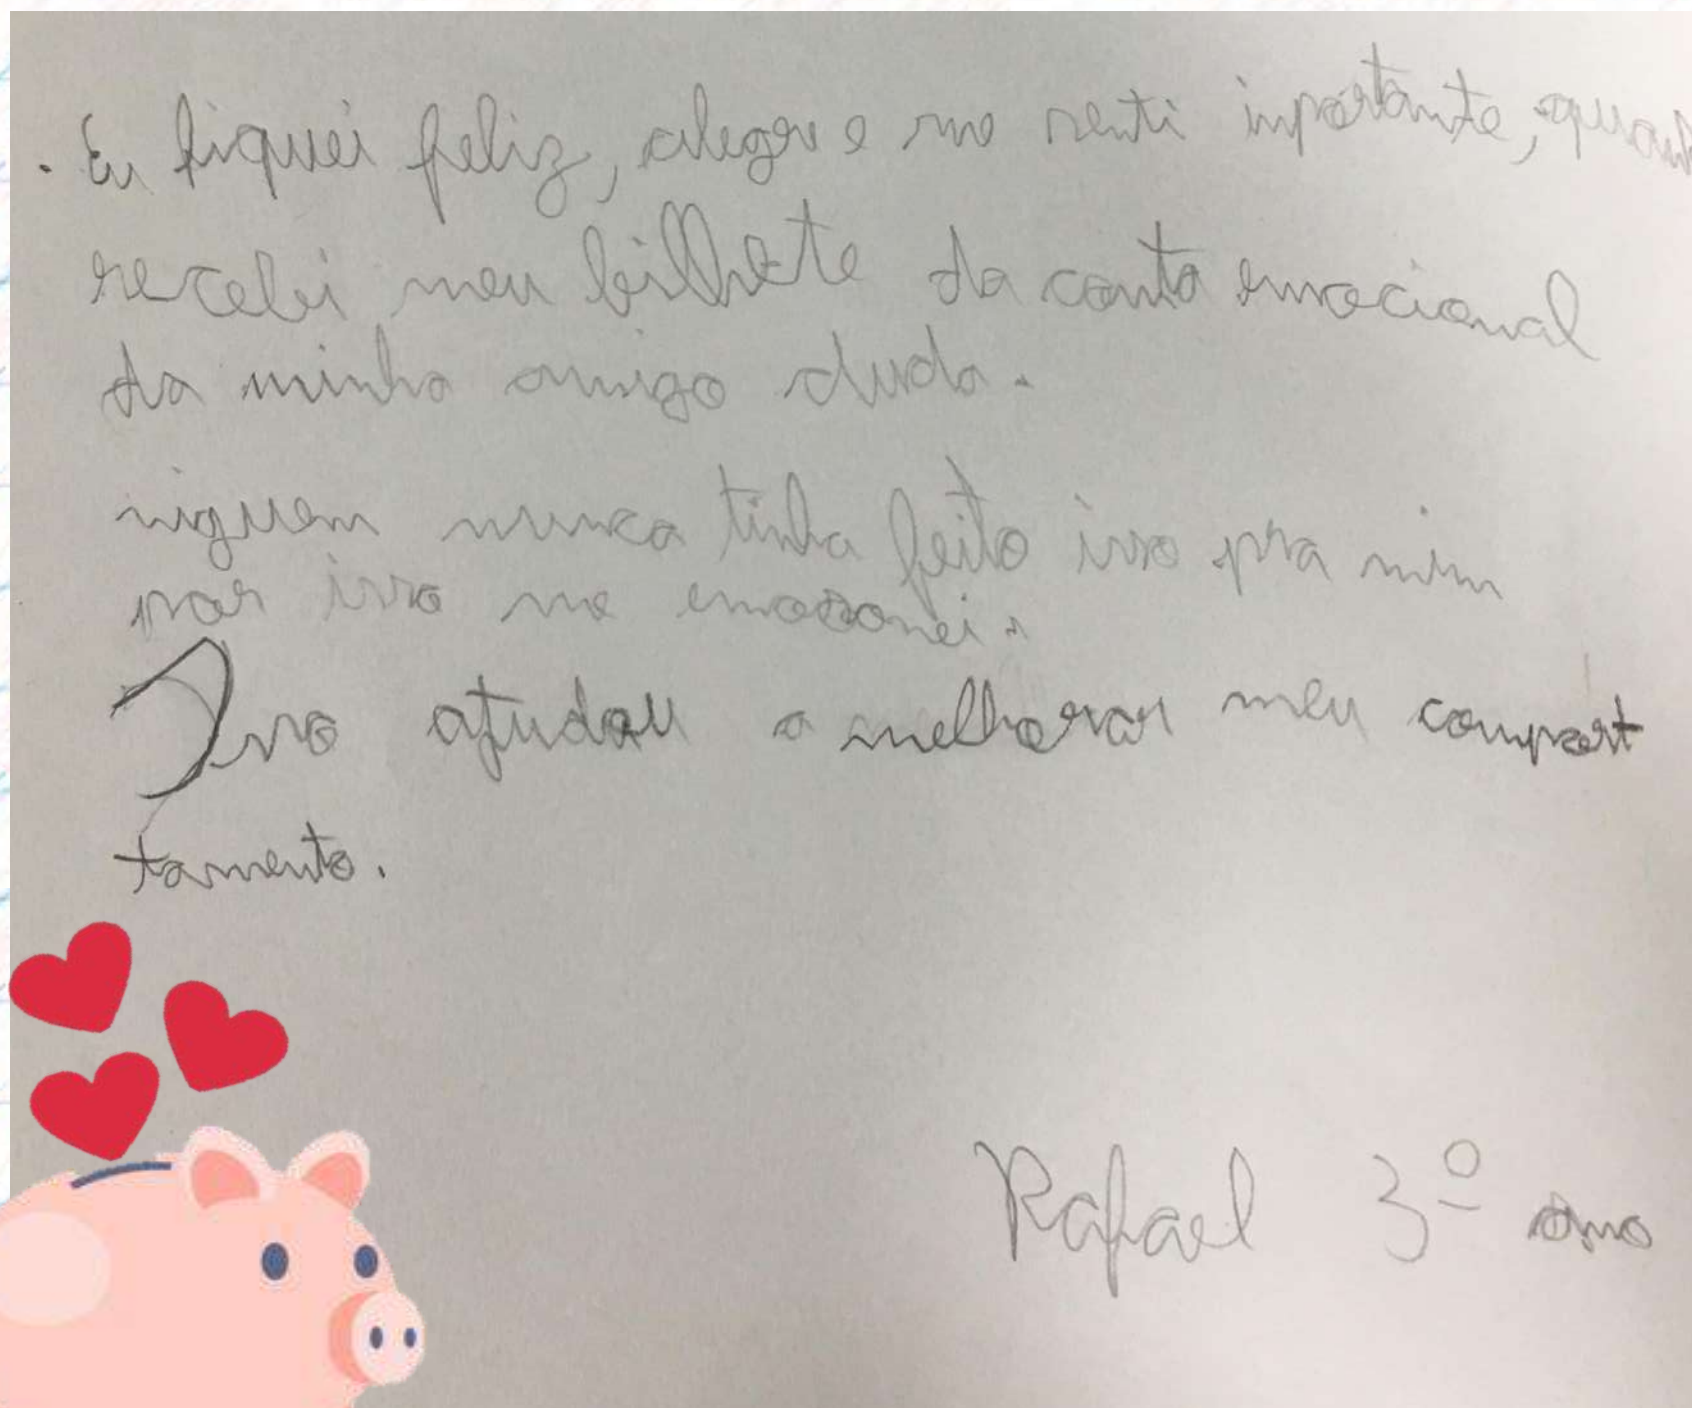 . Eu fiquei feliz, alegre e me senti inportante, quan
recebi meu bilhete da conta emocional
da minha amiga duda.
niguem nunca tinha feito isso pra mim
por isso me emosonei.
Isso ajudou a melhorar meu comport
tamento.
Rafael 3º ano